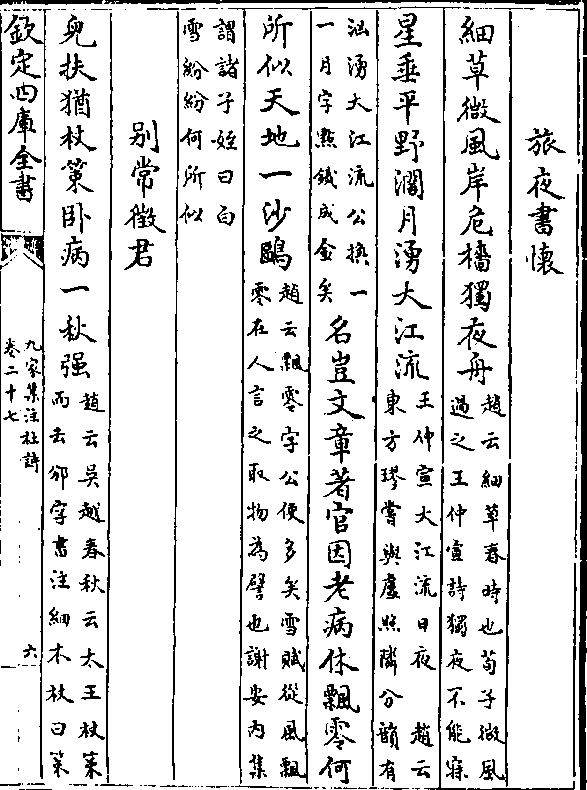 旅夜書懷
細草微風岸危檣獨夜舟趙云細草春時也荀子微風過之王仲宣詩獨夜不能寐
星垂平野濶月湧大江流王仲宣大江流日夜 趙云東方璆嘗與盧照隣分韻有
洶湧大江流公換一一月字點鐵成金矣名豈文章著官因老病休飄零何
所似天地一沙鷗趙云飄零字公使多矣雪賦從風飄零在人言之取物為譬也謝安內集
謂諸子姪曰白雪紛紛何所似
別常徵君
兒扶猶杖策卧病一秋强趙云吳越春秋云太王杖策而去邠字書注細木杖曰策
欽定四庫全書
九家集注杜詩
卷二十七
六